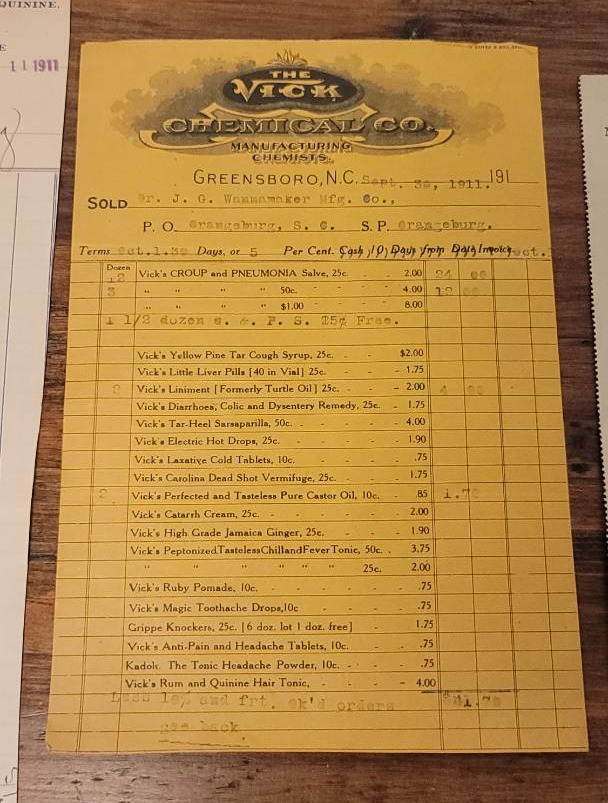 QUININE.
1 1911
THE
VICK
CHEMICAL CO.
MANUFACTURING
CHEMISTS
GREENSBORO, N.C. Sept. 30, 1911. 191
SOLD Dr. J. G. Wannamaker Mfg. Co.,
P. O. Orangeburg, S. C. S. P. Orangeburg.
Terms Oct.1.30 Days, or 5 Per Cent. Cash 10 Days from Date Invoice. Oct.1
Dozen
12 Vick's CROUP and PNEUMONIA Salve, 25c. 2.00 24 00
3 " " " " 50c. - - - 4.00 12 00
" " " " $1.00 - - - 8.00
1 1/2 dozen C. & P. S. 25¢ Free.
Vick's Yellow Pine Tar Cough Syrup, 25c. - - $2.00
Vick's Little Liver Pills [40 in Vial] 25c. - - - 1.75
2 Vick's Liniment [Formerly Turtle Oil] 25c. - - - 2.00 4 00
Vick's Diarrhoea, Colic and Dysentery Remedy, 25c. - 1.75
Vick's Tar-Heel Sarsaparilla, 50c. - - - - 4.00
Vick's Electric Hot Drops, 25c. - - - - 1.90
Vick's Laxative Cold Tablets, 10c. - - - .75
Vick's Carolina Dead Shot Vermifuge, 25c. - - - 1.75
2 Vick's Perfected and Tasteless Pure Castor Oil, 10c. - 85 1.70
Vick's Catarrh Cream, 25c. - - - - 2.00
Vick's High Grade Jamaica Ginger, 25c. - - - 1.90
Vick's Peptonized Tasteless Chill and Fever Tonic, 50c. . 3.75
" " " " " " 25c. 2.00
Vick's Ruby Pomade, 10c. - - - - - .75
Vick's Magic Toothache Drops,10c - - - - .75
Grippe Knockers, 25c. [6 doz. lot 1 doz. free] - 1.75
Vick's Anti-Pain and Headache Tablets, 10c. - - .75
Kadok. The Tonic Headache Powder, 10c. - - - .75
Vick's Rum and Quinine Hair Tonic, - - - - 4.00
Less 10% and frt. ok'd orders $41.70
see back.